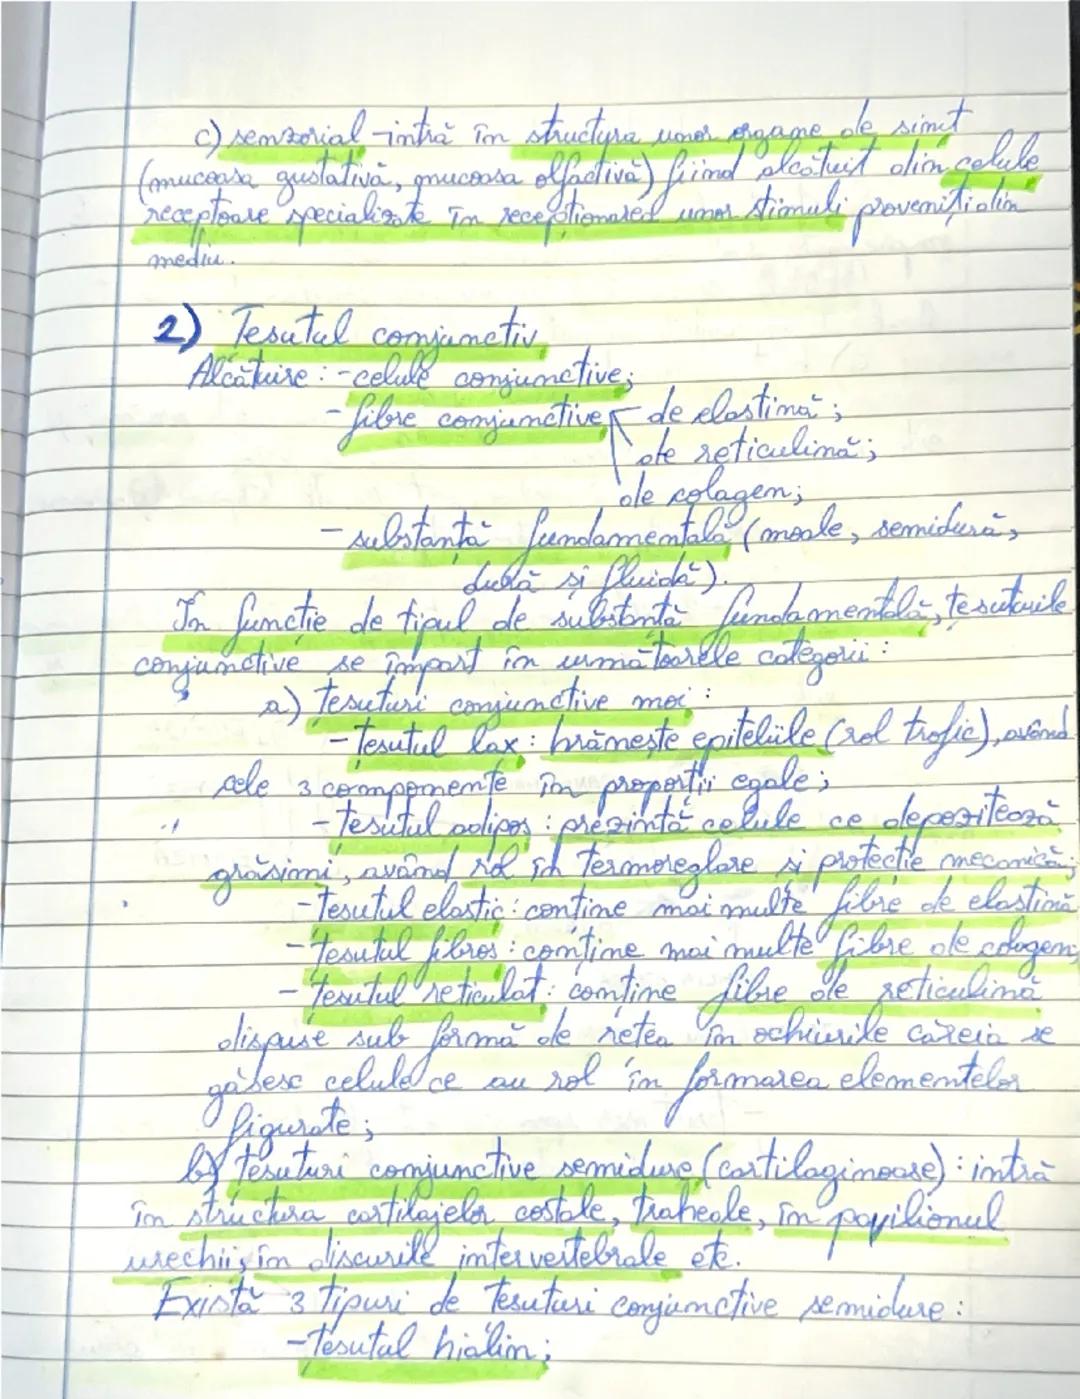 c) senzorial -intră în structura unor organe de simț
(mucoasa gustativă, mucoasa olfactivă) fiind alcătuit din celule
receptoare specializate în recepționarea unor stimuli proveniți din
mediu.
2) Țesutul conjunctiv
Alcătuire: -celule conjunctive;
-fibre conjunctive de elastină;
de reticulină;
de colagen;
-substanță fundamentală (moale, semidură,
dură și fluidă).
În funcție de tipul de substanță fundamentală, țesuturile
conjunctive se împart în următoarele categorii:
a) țesuturi conjunctive moi:
-țesutul lax: hrănește epiteliile (rol trofic), având
cele 3 componente în proporții egale;
-țesutul adipos: prezintă celule ce depozitează
grăsimi, având rol în termoreglare și protecție mecanică;
-țesutul elastic: conține mai multe fibre de elastină
-țesutul fibros: conține mai multe fibre de colagen;
-țesutul reticulat: conține fibre de reticulină
dispuse sub formă de rețea în ochiurile căreia se
găsesc celule ce au rol în formarea elementelor
figurate;
b) țesuturi conjunctive semidure (cartilaginoase): intră
în structura cartilajelor costale, traheale, în pavilionul
urechii, în discurile intervertebrale etc.
Există 3 tipuri de țesuturi conjunctive semidure:
-țesutul hialin;